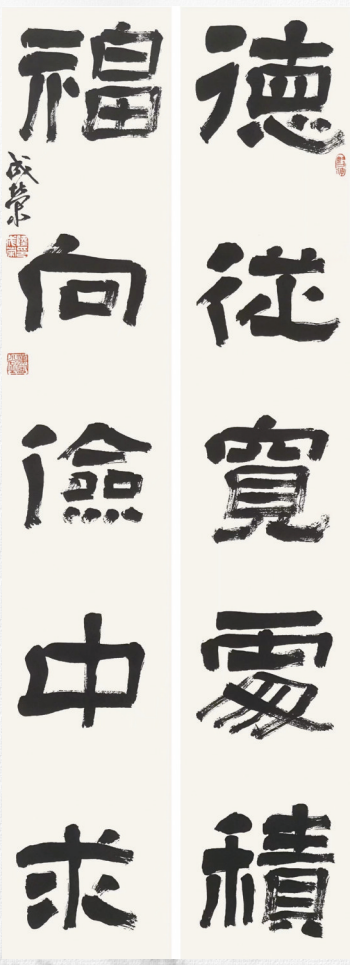 德從寬處積
福向儉中求
成榮